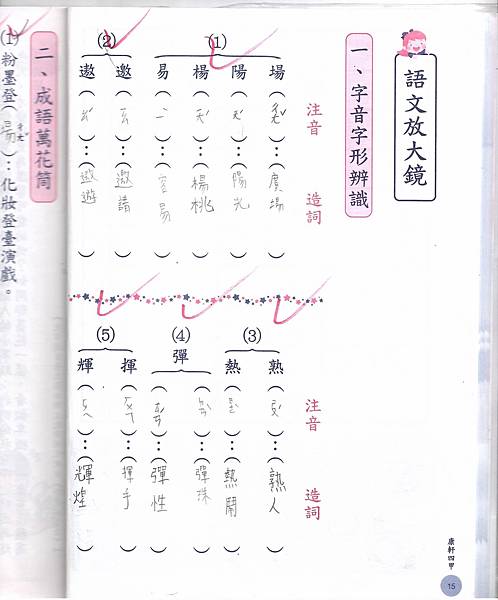 語文放大鏡
一、字音字形辨識
注音 造詞
(1)
場（ ）：（廣場）
陽（ ）：（陽光）
楊（ ）：（楊桃）
易（ㄧˋ）：（容易）
(2)
邀（ㄠ）：（邀請）
遨（ㄠˊ）：（遨遊）
注音 造詞
(3)
熟（ ）：（熟人）
熱（ ）：（熱鬧）
(4)
彈
（ ）：（彈珠）
（ ）：（彈性）
(5)
揮（ ）：（揮手）
輝（ ）：（輝煌）
康軒四甲
15
二、成語萬花筒
(1)粉墨登（場）：化妝登臺演戲。